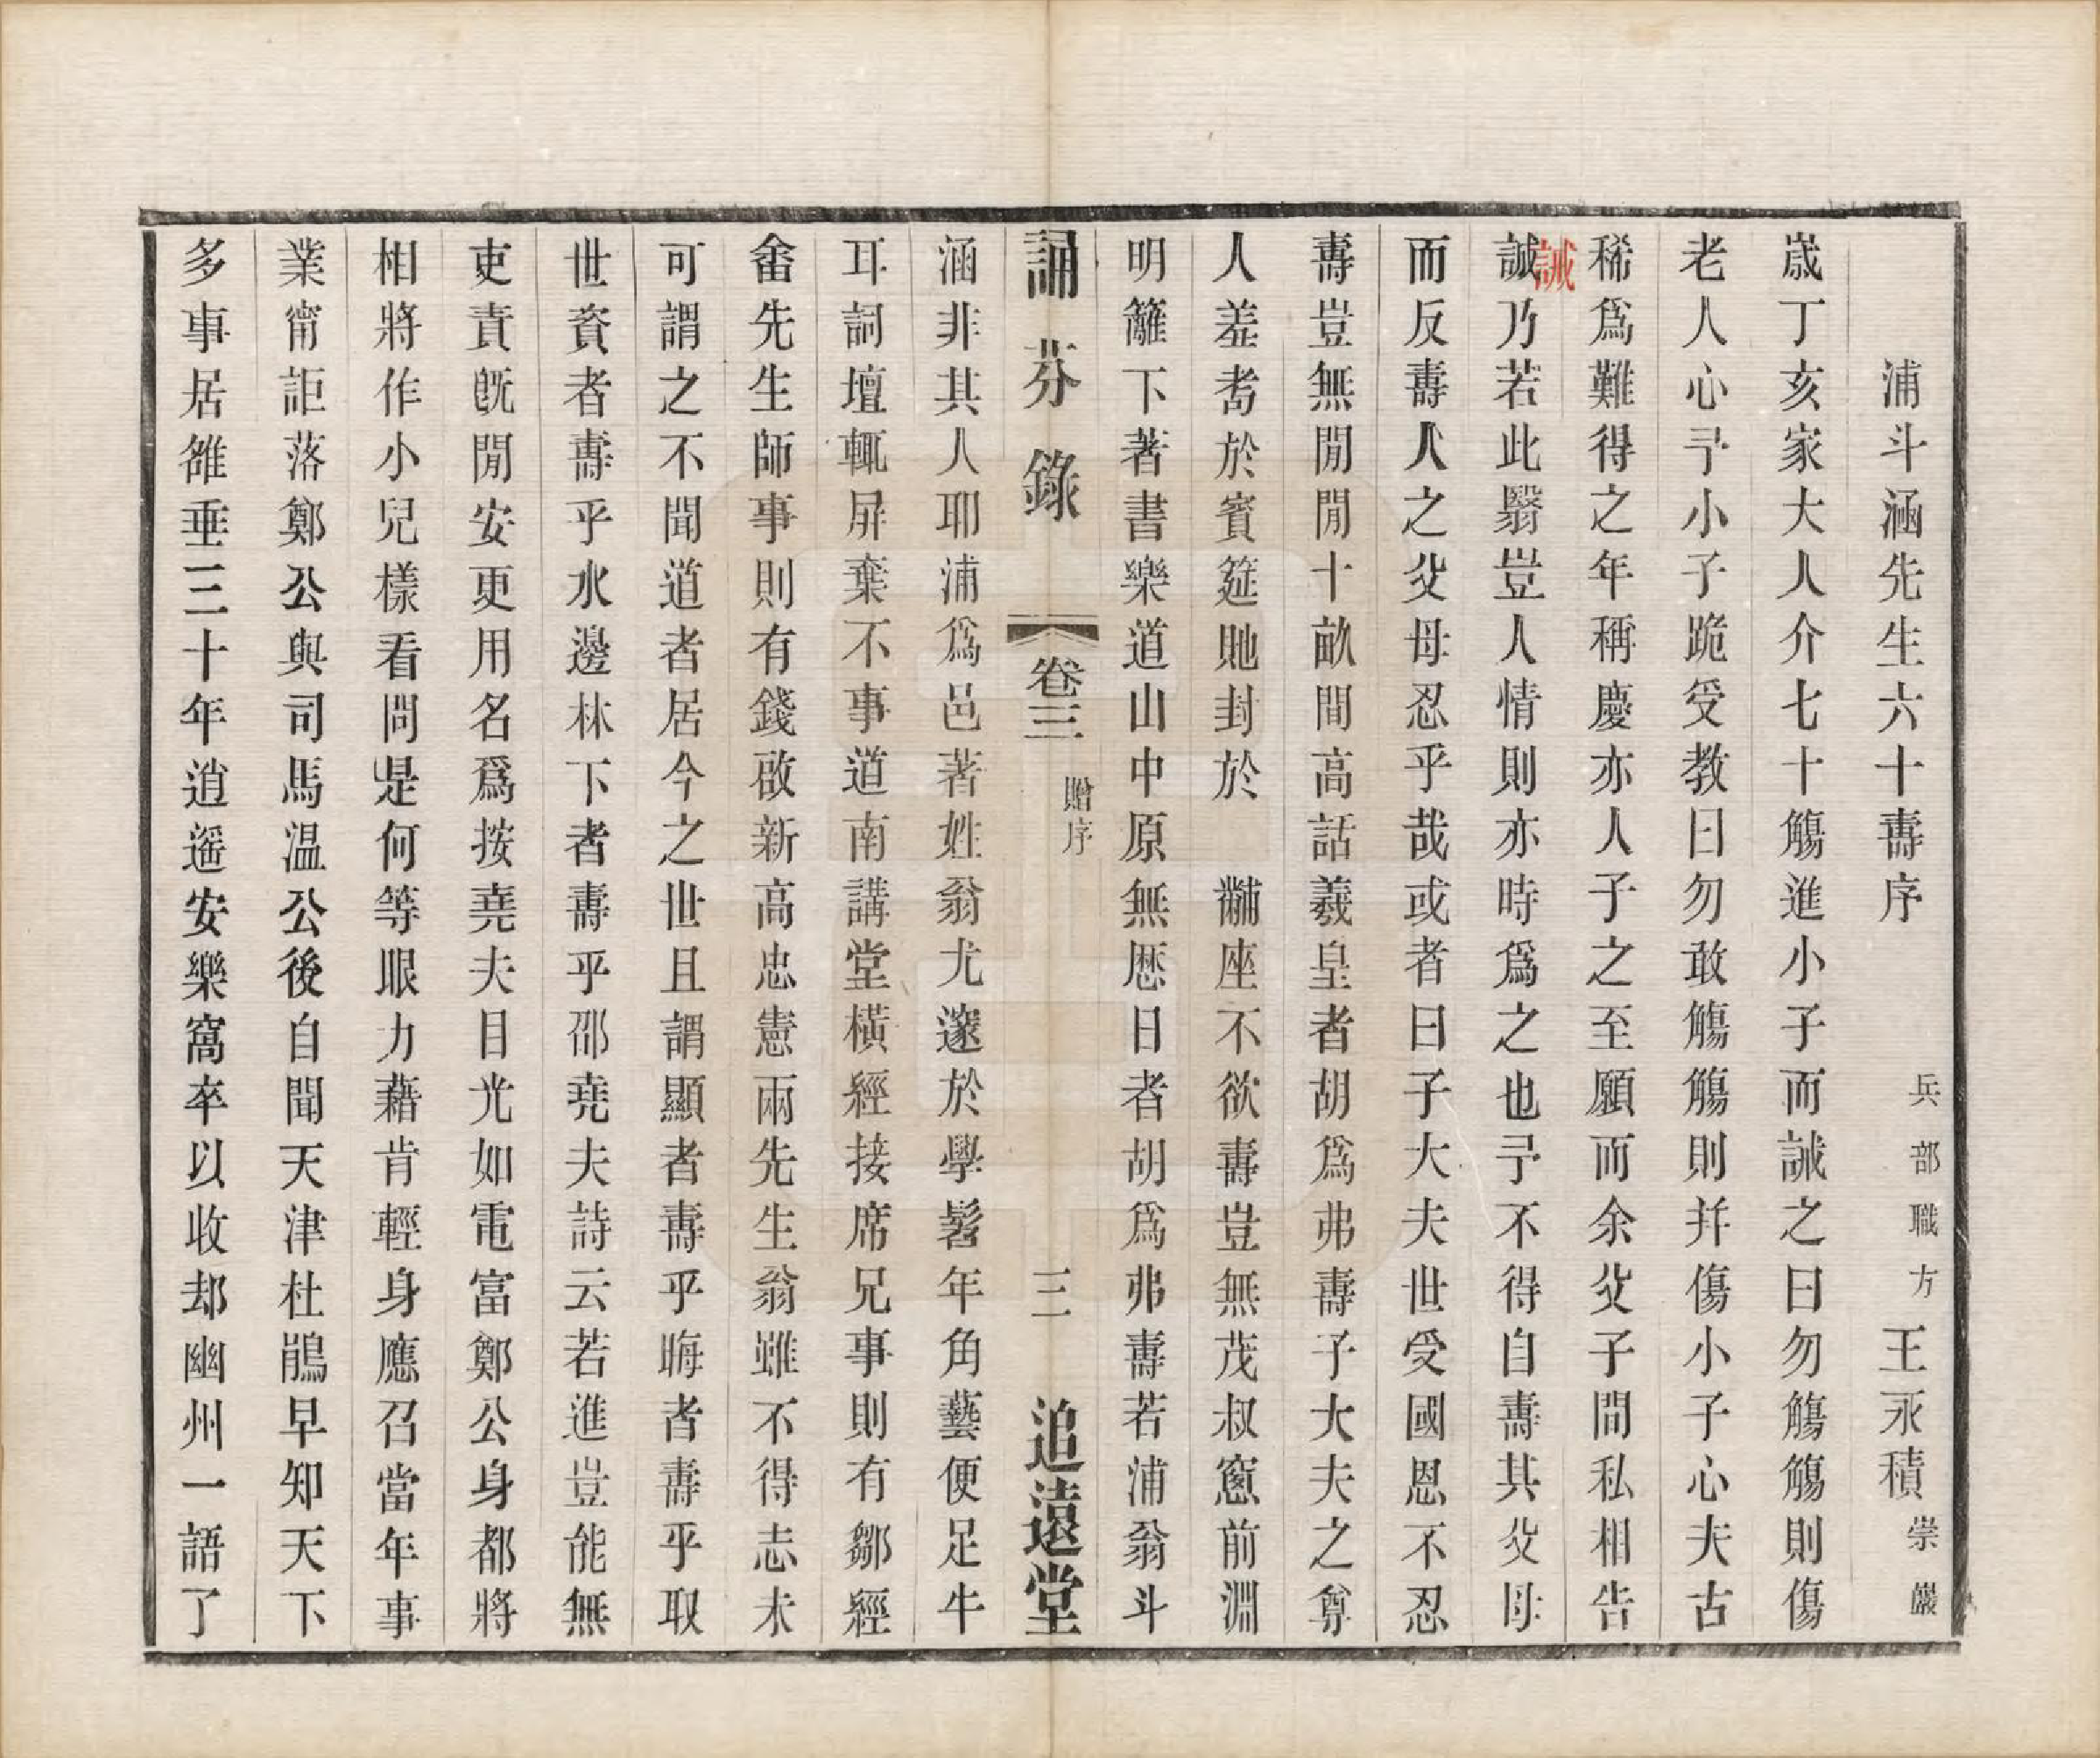 浦斗涵先生六十壽序 兵部職方王永積崇巖
歲丁亥家大人介七十觴進小子而誡之曰勿觴觴則傷
老人心予小子跪受教曰勿敢觴觴則幷傷小子心夫古
稀爲難得之年稱慶亦人子之至願而余父子間私相告
誠乃若此翳豈人情則亦時爲之也予不得自壽其父母
誡
而反壽人之父母忍乎哉或者曰子大夫世受國恩不忍
壽豈無閒閒十畝間高話羲皇者胡爲弗壽子大夫之尊
人羞耇於賓筵貤封於 黼座不欲壽豈無茂叔窻前淵
明籬下著書樂道山中原無厯日者胡爲弗壽若浦翁斗
誦芬錄 卷三 贈序 三 追遠堂
涵非其人耶浦爲邑著姓翁尤邃於學髫年角藝便足牛
耳詞壇輒屏棄不事道南講堂橫經接席兄事則有鄒經
畬先生師事則有錢啟新高忠憲兩先生翁雖不得志未
可謂之不聞道者居今之世且謂顯者壽乎晦者壽乎取
世資者壽乎水邊林下者壽乎邵堯夫詩云若進豈能無
吏責旣閒安更用名爲按堯夫目光如電富鄭公身都將
相將作小兒樣看問是何等眼力藉肯輕身應召當年事
業甯詎落鄭公與司馬温公後自聞天津杜鵑早知天下
多事居雒垂三十年逍遥安樂窩卒以收却幽州一語了